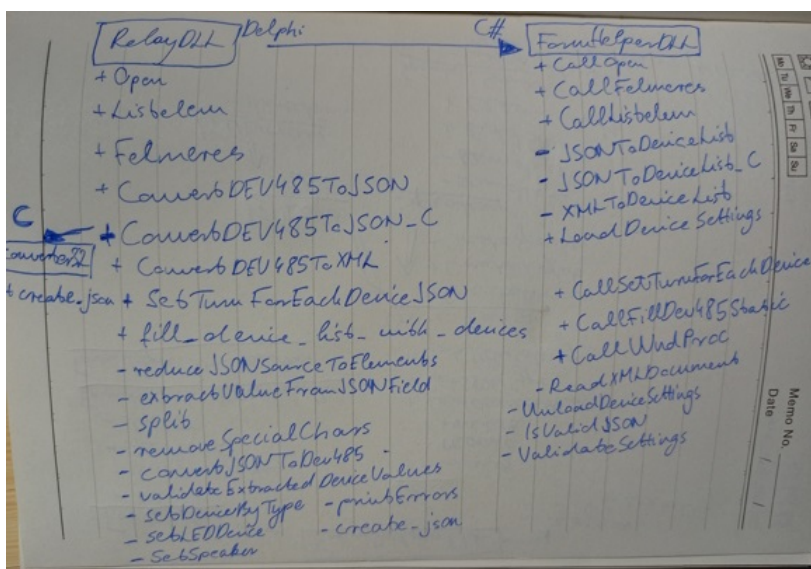 RelayDLL
Delphi
+ Open
+ Listelem
+ Felmeres
+ ConvertDEV485ToJSON
+ ConvertDEV485ToJSON_C
+ ConvertDEV485ToXML
+ SetTurnForEachDeviceJSON
+ fill_device_list_with_devices
- reduceJSONSourceToElements
- extractValueFromJSONField
- split
- removeSpecialChars
- convertJSONToDev485
- validateExtractedDeviceValues
- setDeviceByType
- setLEDDevice
- SetSpeaker
- printErrors
- create_json
C
Converter32
+ create_json
C#
FormHelperDLL
+ CallOpen
+ CallFelmeres
+ CallListelem
- JSONToDeviceList
- JSONToDeviceList_C
- XMLToDeviceList
+ LoadDeviceSettings
+ CallSetTurnForEachDevice
+ CallFillDev485Static
+ CallWndProc
- ReadXMLDocument
- UnloadDeviceSettings
- IsValidJSON
- ValidateSettings
Mo Tu We Th Fr Sa Su
Memo No.
Date / /